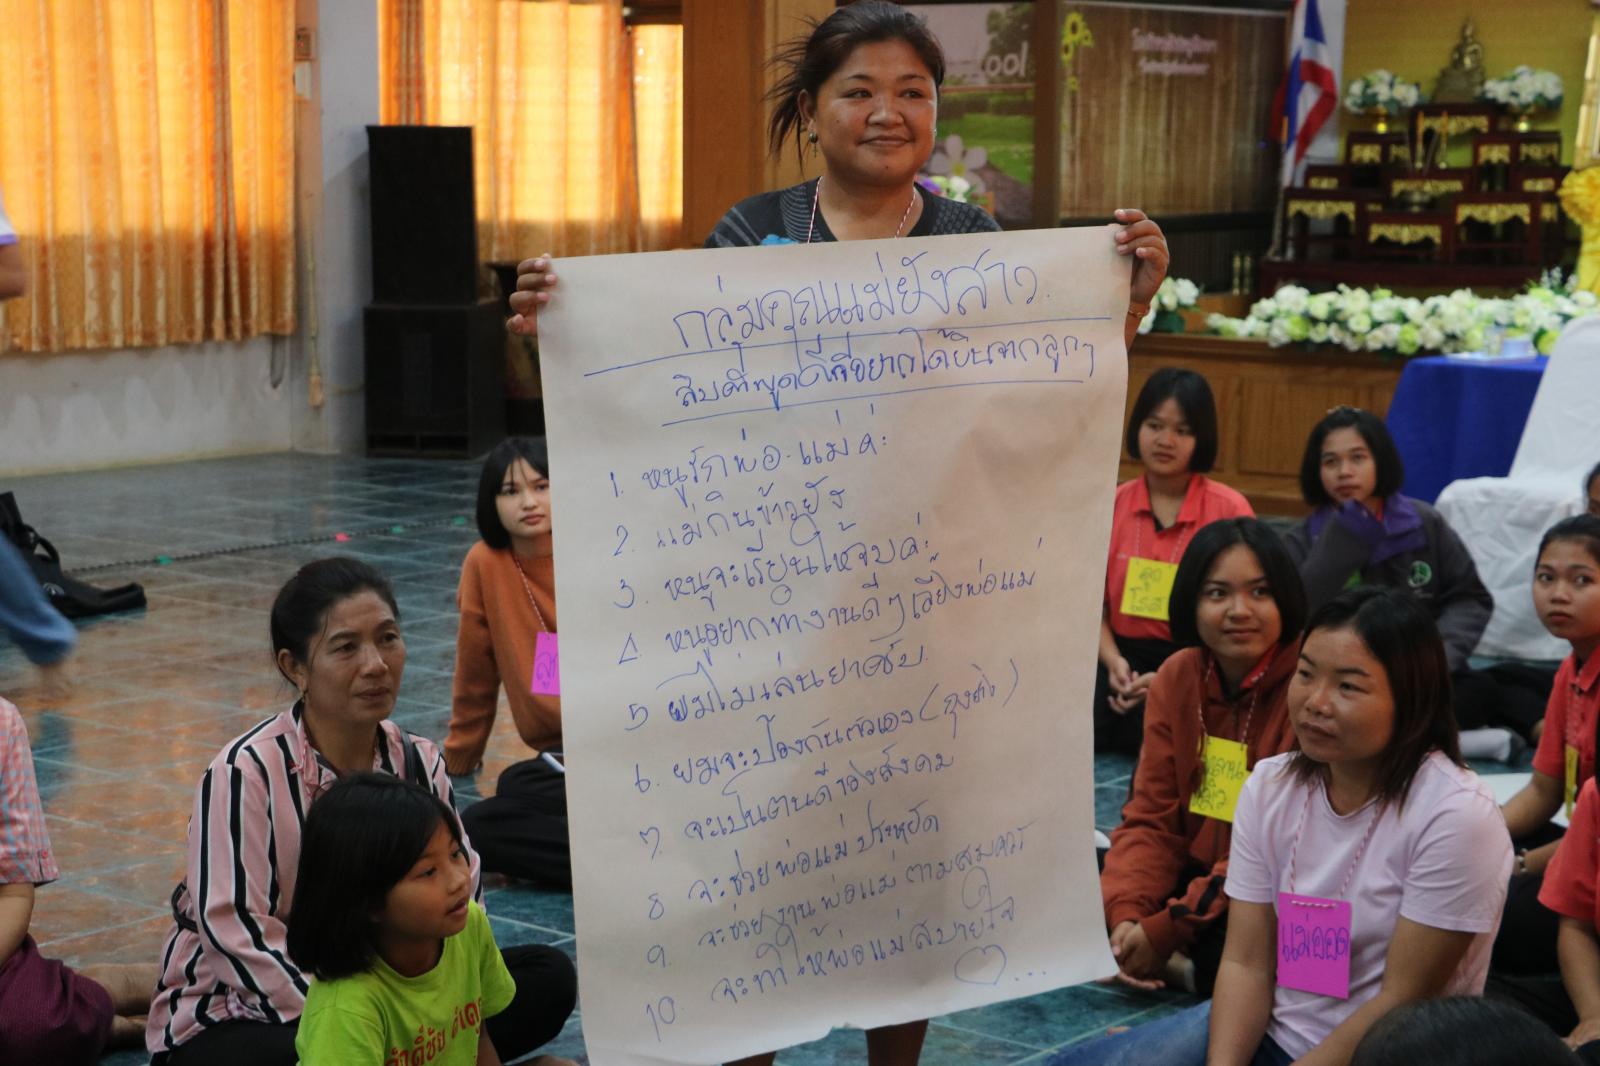 กลุ่มคุณแม่ยังสาว.
สิบคำพูดดีที่อยากได้ยินจากลูกๆ
1. หนูรักพ่อ-แม่ค่ะ
2. แม่กินข้าวยัง
3. หนูจะเรียนให้จบค่ะ
4. หนูอยากทำงานดีๆเลี้ยงพ่อแม่
5 ผมไม่เล่นยาครับ.
6. ผมจะป้องกันตัวเอง (ถุงยาง)
7. จะเป็นคนดีของสังคม
8 จะช่วยพ่อแม่ประหยัด
9. จะช่วยงานพ่อแม่ตามสมควร
10. จะทำให้พ่อแม่สบายใจ
แม่ออด
ool